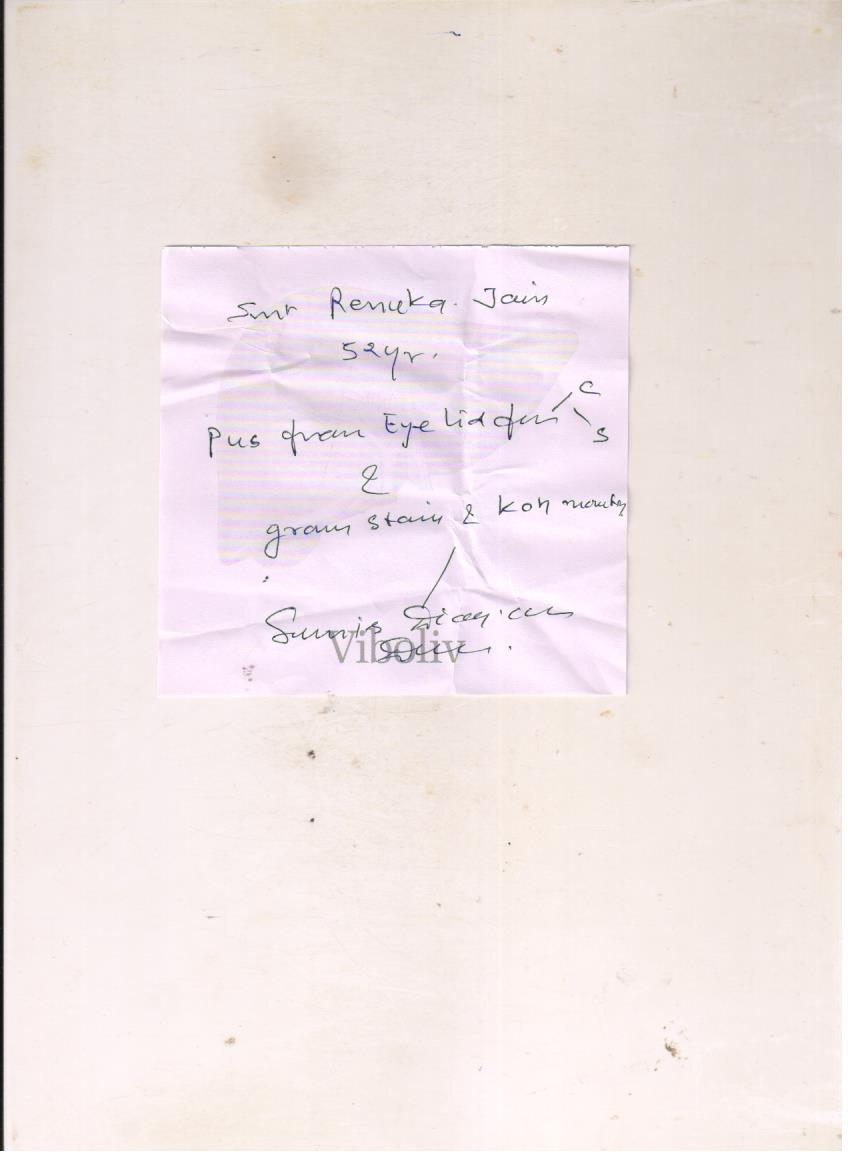 Smt Renuka. Jain
52yr.
Pus from Eye lid for C
S
&
gram stain & KOH
Viboliv